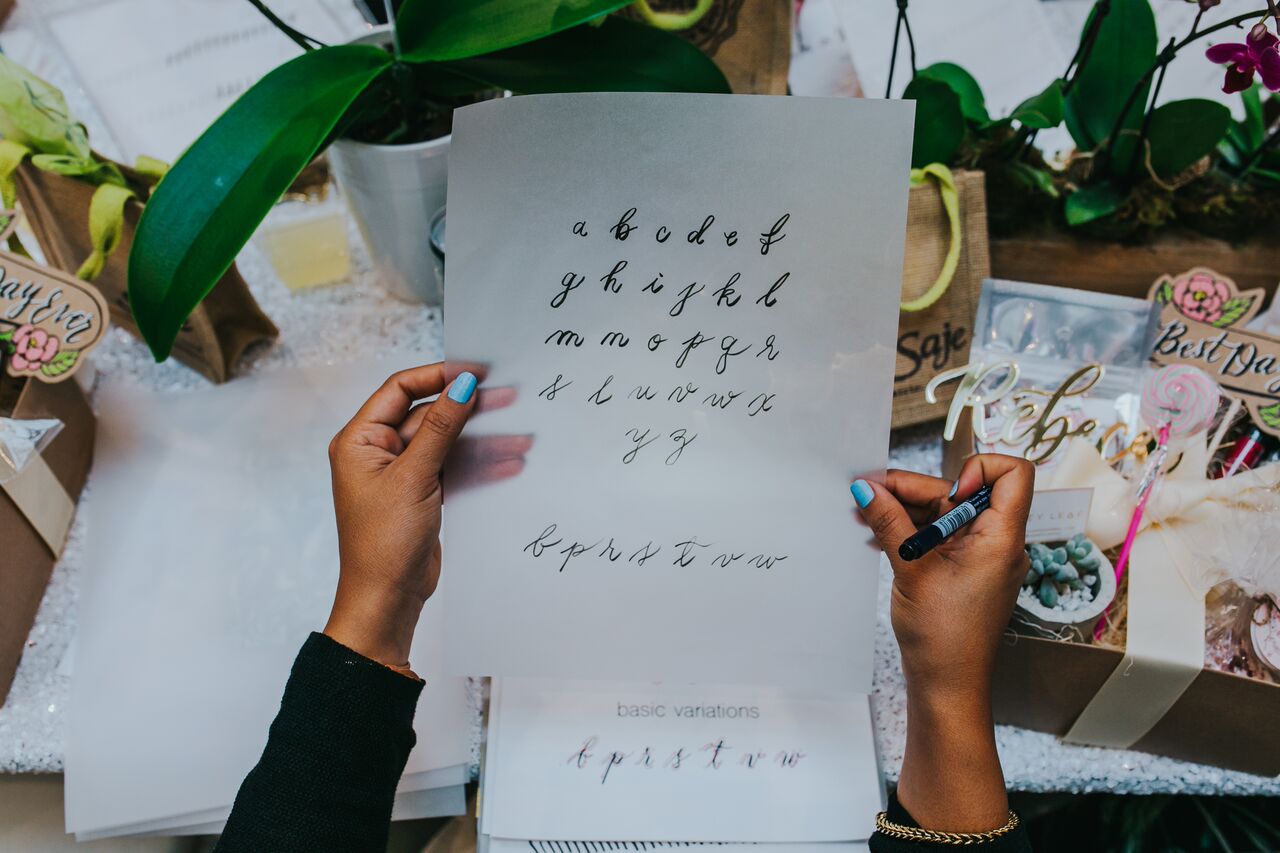 a b c d e f
g h i j k l
m n o p q r
s t u v w x
y z
b p r s t v w
basic variations
b p r s t v w
Day Ever
Saje
Best Day